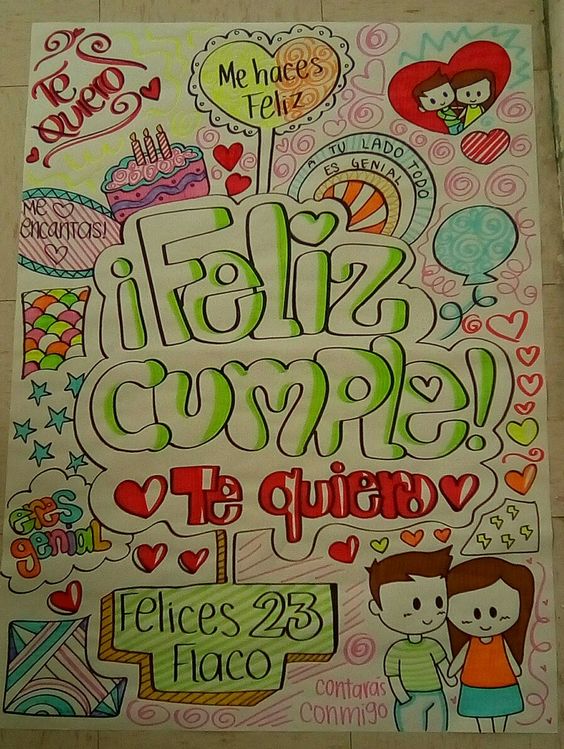 Te
Quiero
Me haces
Feliz
A TU LADO TODO
ES GENIAL
Me
encantas!
¡Feliz
cumple!
Te quiero
eres
genial
Felices 23
Flaco
contaras
conmigo